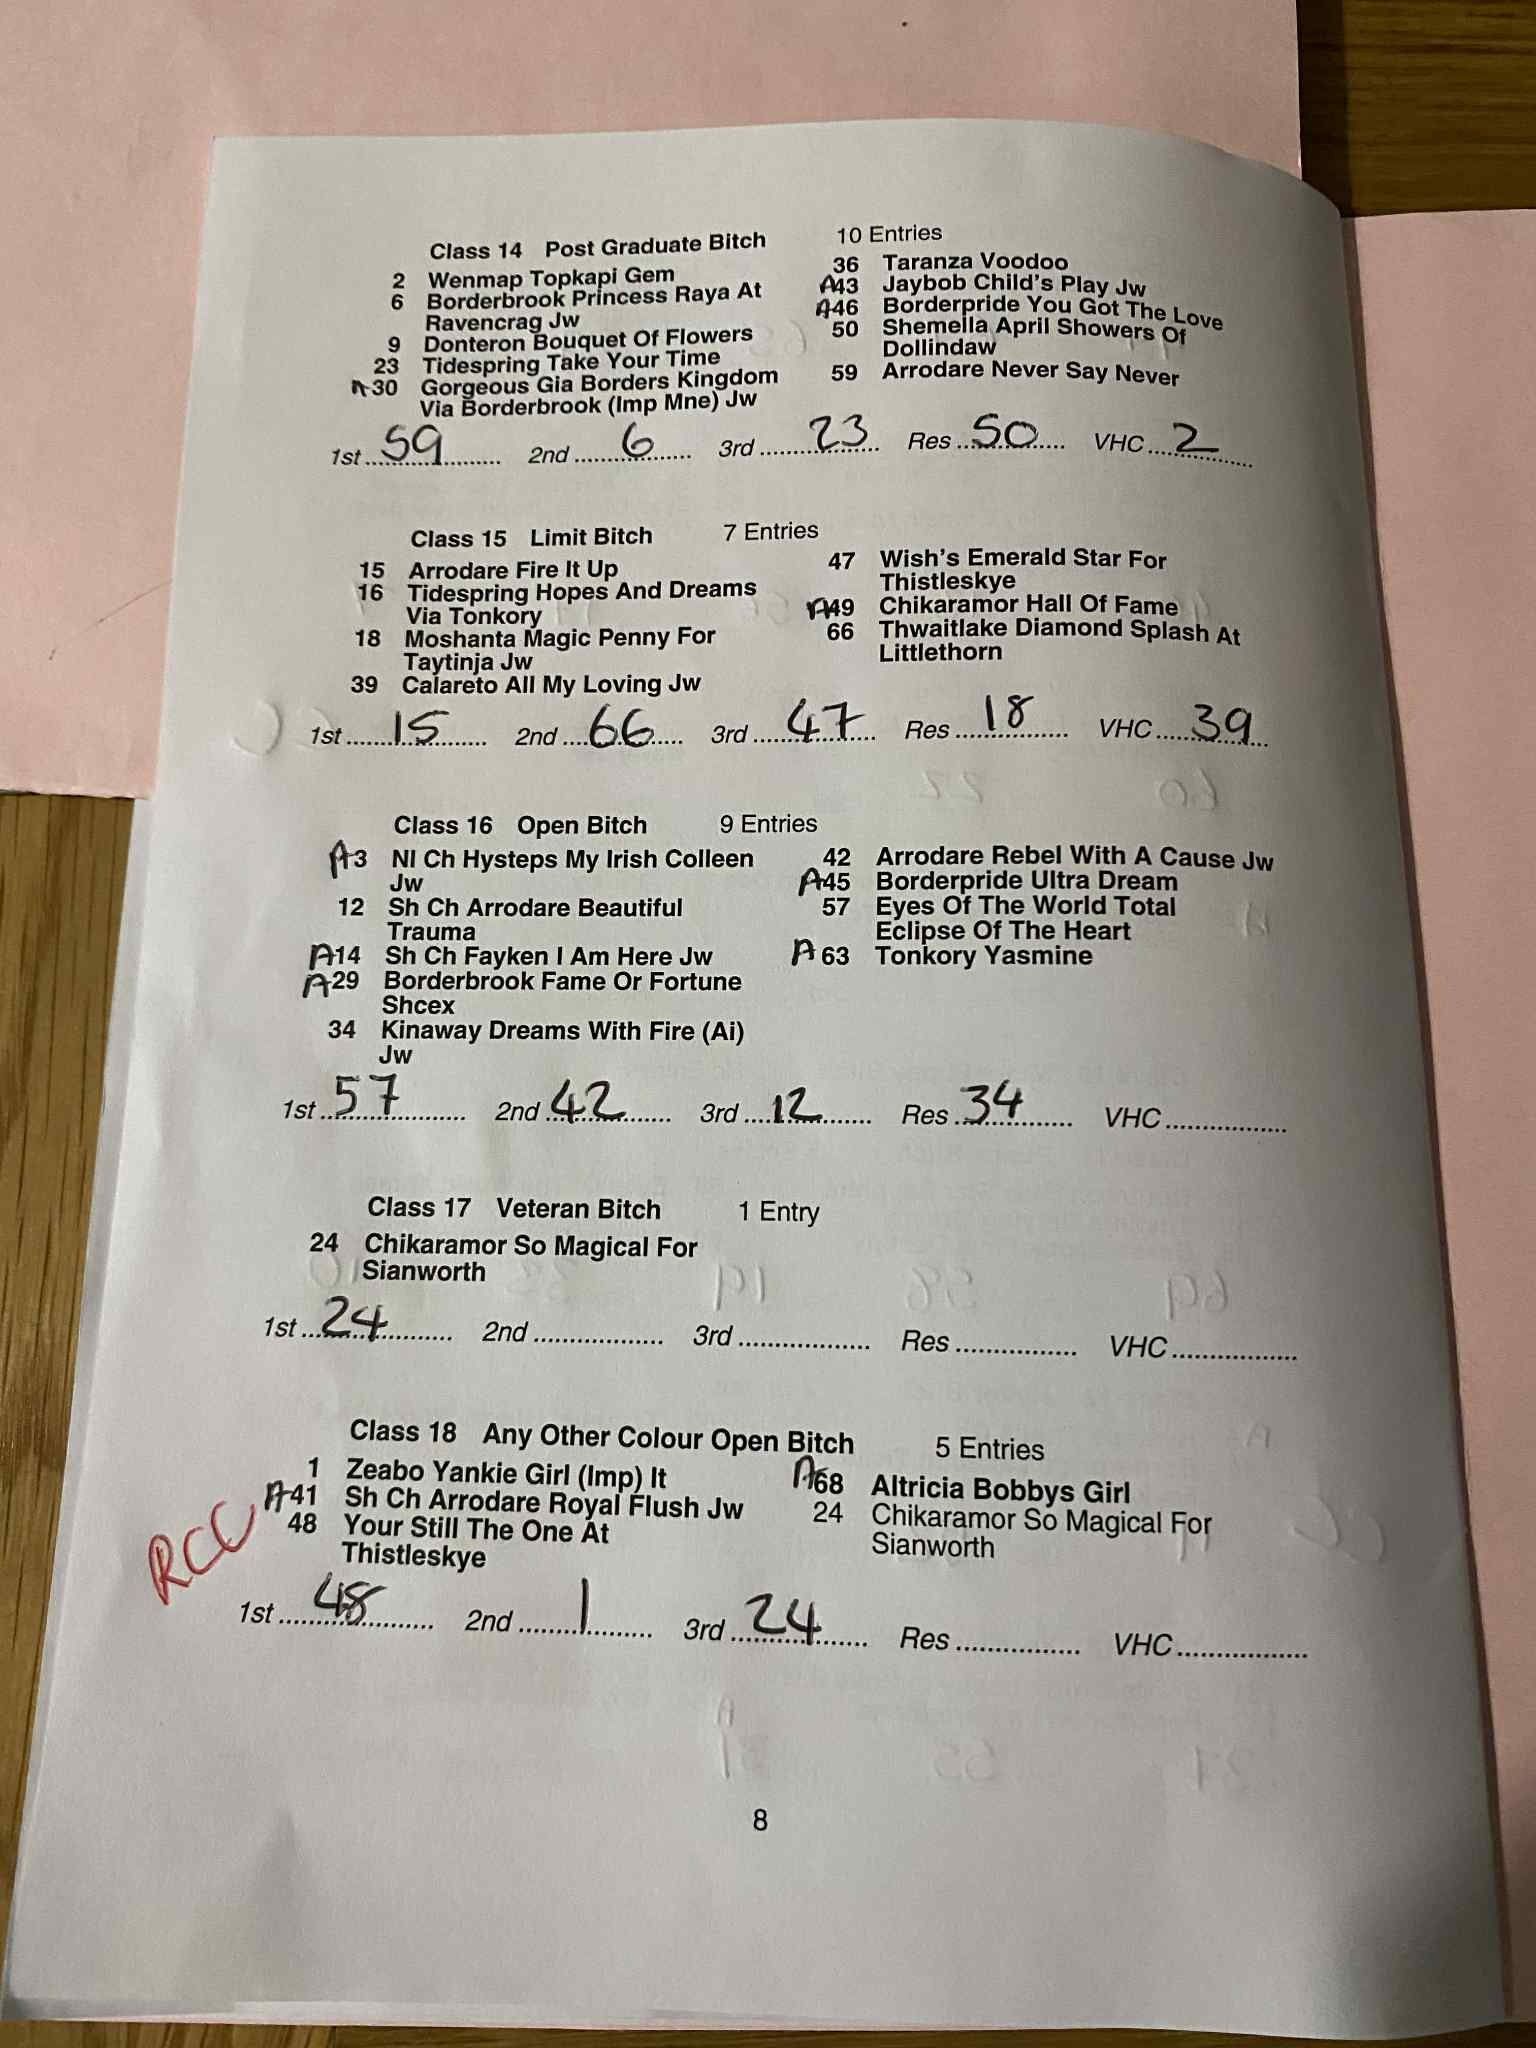 Class 14 Post Graduate Bitch 10 Entries
2 Wenmap Topkapi Gem
6 Borderbrook Princess Raya At
Ravencrag Jw
9 Donteron Bouquet Of Flowers
23 Tidespring Take Your Time
A 30 Gorgeous Gia Borders Kingdom
Via Borderbrook (Imp Mne) Jw
36 Taranza Voodoo
A 43 Jaybob Child's Play Jw
A 46 Borderpride You Got The Love
50 Shemella April Showers Of
Dollindaw
59 Arrodare Never Say Never
1st 59 2nd 6 3rd 23 Res 50 VHC 2
Class 15 Limit Bitch 7 Entries
15 Arrodare Fire It Up
16 Tidespring Hopes And Dreams
Via Tonkory
18 Moshanta Magic Penny For
Taytinja Jw
39 Calareto All My Loving Jw
47 Wish's Emerald Star For
Thistleskye
A 49 Chikaramor Hall Of Fame
66 Thwaitlake Diamond Splash At
Littlethorn
1st 15 2nd 66 3rd 47 Res 18 VHC 39
Class 16 Open Bitch 9 Entries
A 3 Nl Ch Hysteps My Irish Colleen
Jw
12 Sh Ch Arrodare Beautiful
Trauma
A 14 Sh Ch Fayken I Am Here Jw
A 29 Borderbrook Fame Or Fortune
Shcex
34 Kinaway Dreams With Fire (Ai)
Jw
42 Arrodare Rebel With A Cause Jw
A 45 Borderpride Ultra Dream
57 Eyes Of The World Total
Eclipse Of The Heart
A 63 Tonkory Yasmine
1st 57 2nd 42 3rd 12 Res 34 VHC
Class 17 Veteran Bitch 1 Entry
24 Chikaramor So Magical For
Sianworth
1st 24 2nd 3rd Res VHC
Class 18 Any Other Colour Open Bitch 5 Entries
1 Zeabo Yankie Girl (Imp) It
A 41 Sh Ch Arrodare Royal Flush Jw
48 Your Still The One At
Thistleskye
A 68 Altricia Bobbys Girl
24 Chikaramor So Magical For
Sianworth
RCC
1st 48 2nd 1 3rd 24 Res VHC
8